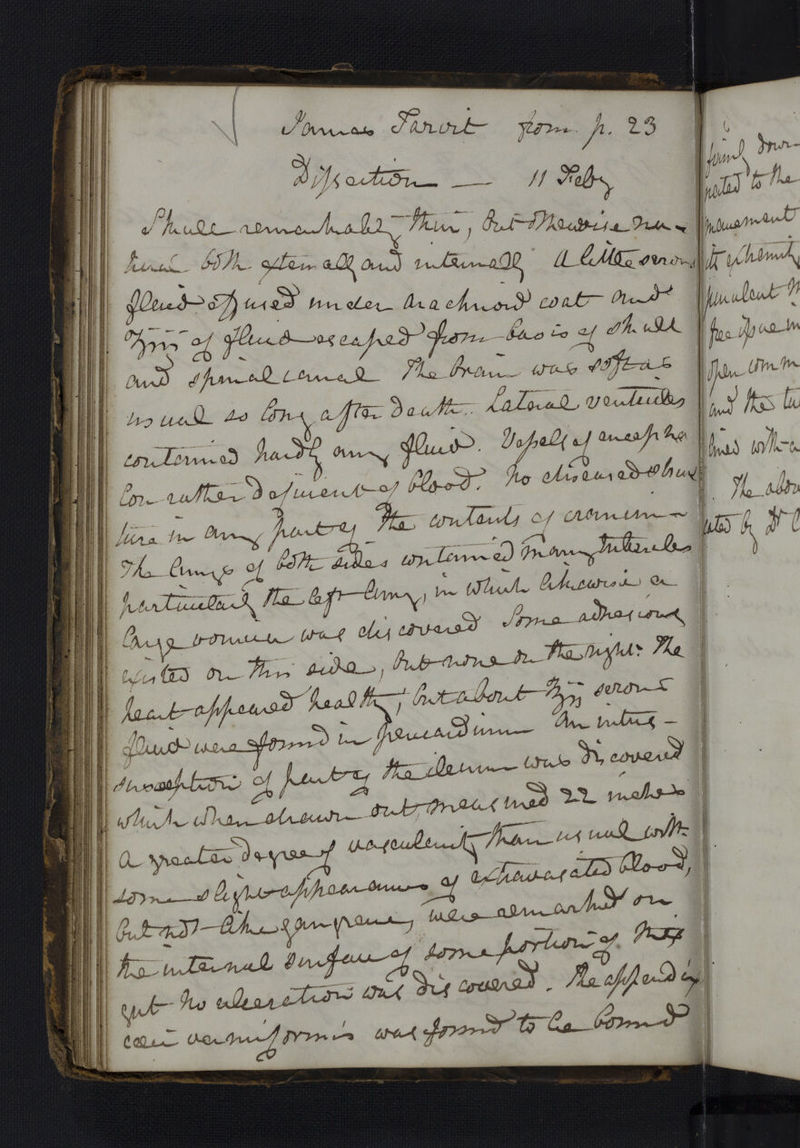 James Tarvit from p. 23
Dissection — 11 Feby
Skull remarkably thin, but otherwise na-
tural both externally and internally A little serous
fluid effused under arachnoid coat and
ʒiij of fluid escaped from basis of skull
and spinal canal The brain was soft as
usual so long after death. Lateral ventricles
contained hardly any fluid. Vessels of encepha
lon rather deficient of blood. No diseased struc
ture in any part of the contents of cranium -
The lungs of both sides contained many tubercles
particularly the left lung, in which likewise a
large vomica was discovered Some adhesions
existed on this side, but none on the right. The
heart appeared healthy, but about ʒij serous
fluid were found in pericardium An intus-
susception of part of the ileum was discovered
which when drawn out, measured 22 inches
A greater degree of vascularity than usual with
some slight appearances of extravasated blood,
but not like gangrene, were remarked on
the internal surface of some portion of this
gut No ulceration was discovered. The appendix
cœci vermiformis was found to be bound
firmly down
to the
movement
its extremity
purulent
free
open comm
and the
lined with a
The abov
by Dr